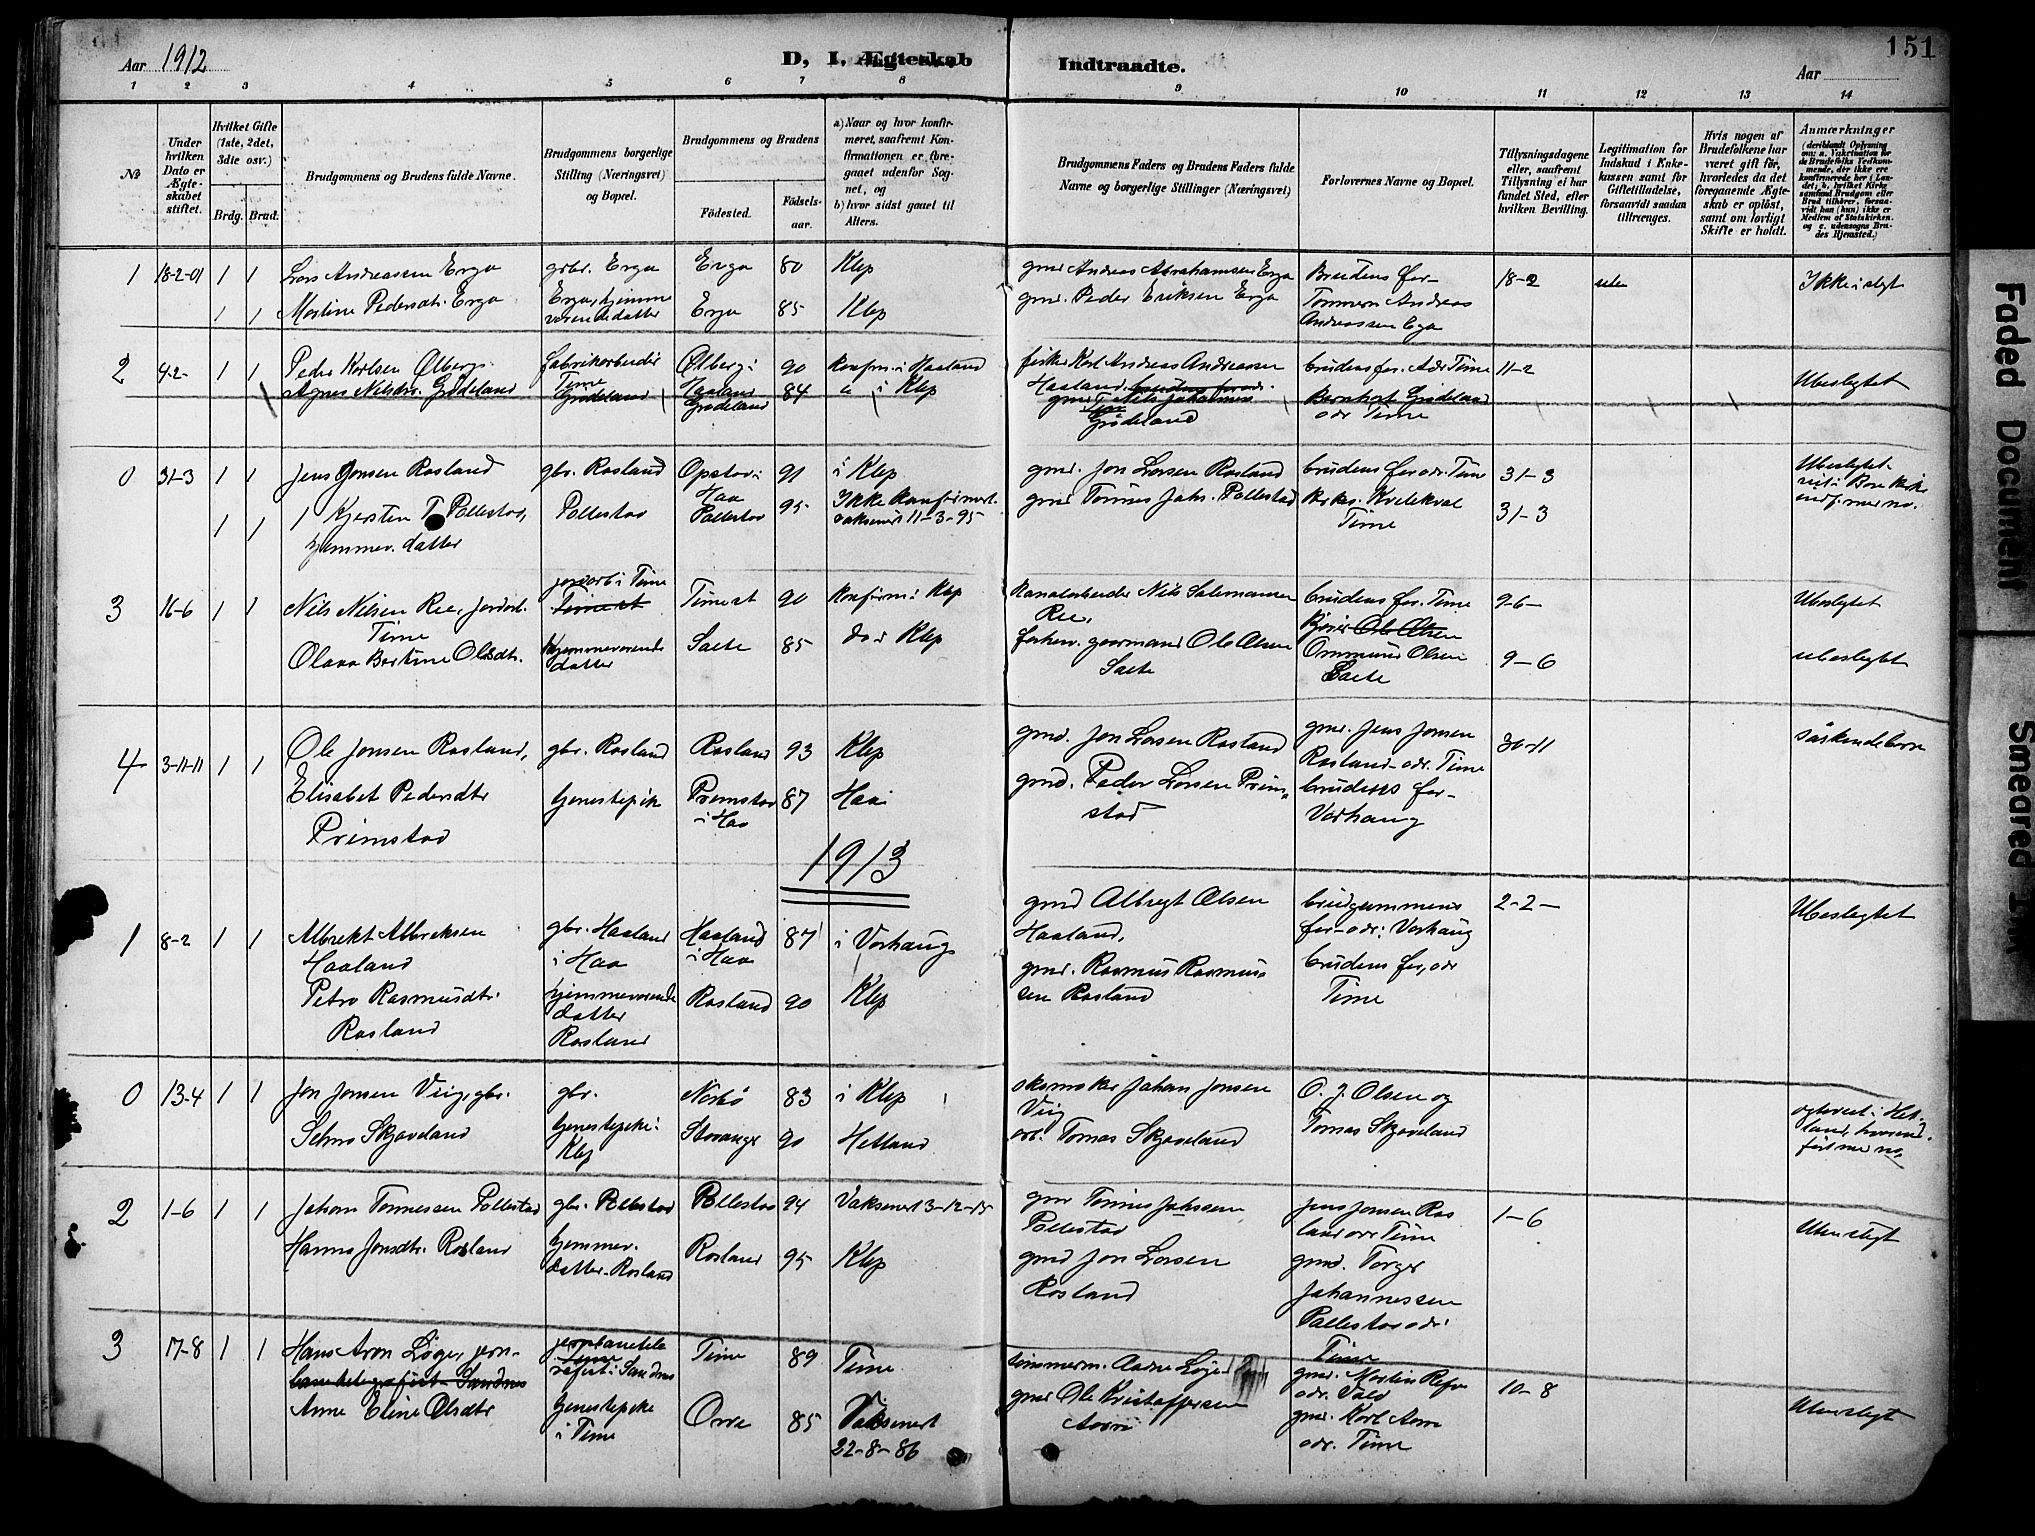 151
Aar 1912
D, I, Ægteskab
Indtraadte.
Aar
1 2 3 4 5 6 7 8 9 10 11 12 13 14
No
Under hvilken Dato er Ægteskabet stiftet.
Hvilket Gifte (1ste, 2det, 3die osv.)
Brdg. Brud.
Brudgommens og Brudens fulde Navne.
Brudgommens borgerlige Stilling (Næringsvei) og Bopæl.
Brudgommens og Brudens
Fødested. Fødselsaar.
a) Naar og hvor konfirmeret, saafremt Konfirmationen er foregaaet udenfor Sognet, og
b) hvor sidst gaaet til Alters.
Brudgommens Faders og Brudens Faders fulde Navne og borgerlige Stillinger (Næringsvei)
Forlovernes Navne og Bopæl.
Tillysningsdagene eller, saafremt Tillysning ei har fundet Sted, efter hvilken Bevilling.
Legitimation for Indskud i Enkekassen samt for Giftetilladelse, forsaavidt saadan tiltrænges.
Hvis nogen af Brudefolkene har været gift før, hvorledes da det foregaaende Ægteskab er opløst, samt om lovligt Skifte er holdt.
Anmærkninger (deriblandt Oplysning om: a. Vaksination for de Brudefolks Vedkommende, der ikke ere konfirmerede her i Landet; b. hvilket Kirkesamfund Brudgom eller Brud tilhører, forsaavidt han (hun) ikke er Medlem af Statskirken, og c. udensogns Brudes Hjemsted.)
1 18-2-01 1 1 Lars Andreassen Erga grbr. Erga Erga 80 Klep gmd Andreas Abrahamsen Erga Brudens far- 18-2 Ikke i slegt
1 1 Martine Pedersdt. Erga Erga, hjemmeværende datter Erga 85 Klep gmd. Peder Eriksen Erga Andreas
Andreassen Erga
2 4-2- 1 1 Peder Karlsen Ølberg fabrikarbeider Ølberg i 90 Konfirm. i Haaland fisker Karl Andreas Andreassen brudens far. Adr Time 11-2
Agnes Nelsdtr. Grødeland Time Grødeland Haaland Grødeland 84 i Klep Haaland Ubeslegtet
Grødeland Bernhart Grødeland adr Time
0 31-3 1 1 Jens Jonsen Rosland gbr. Rosland Opstad i 91 i Klep gmd. Jon Larsen Rosland brudens far adr. Time 31-3 Ubeslegtet
1 1 Kjersten T Pollestad, Pollestad Haa Pollestad 95 Ikke konfirmert. gmd Tønnes Johs. Pollestad Time 31-3
hjemmev. datter vaksinert 11-3-95
3 16-6 1 1 Nils Nilsen Ree, jordarb. jordarb i Time Time st 90 Konfirm i Klep Kanalarbeider Nils Salemonsen brudens far. Time 9-6- Ubeslegtet
Time Time st Ree,
Olava Bertine Olsdtr. hjemmeværende datter Saele 85 do i Klep Ole Olsen Saele Ole Olsen Ommund Olsen Saele 9-6 ubeslegtet
4 3-11-11 1 1 Ole Jonsen Rosland, gbr. Rosland Rosland 93 Klep gmd. Jon Larsen Rosland gmd. Jens Jonsen Rosland adr. Time søskendebarn
Elisabet Pedersdtr Primstad tjenestepik Primstad i Haa 87 Haa gmd. Peder Larsen Primstad brudens far- Varhaug
1913
1 8-2 1 1 Albrekt Albreksen Haaland gbr. Haaland i Haa Haaland i Haa 87 i Varhaug gmd Albregt Olsen Haaland, brudgummens far-adr: Varhaug 2-2- Ubeslegtet
Petra Rasmusdtr Rosland hjemmeværende datter Rosland Rosland 90 Klep gmd. Rasmus Rasmussen Rosland brudens far, adr Time
0 13-4 1 1 Jon Jonsen Vig, gbr. gbr. Norbø 83 i Klep Johan Jonsen Vig O. J. Olsen og
Selma Skjæveland tjenestepike Klep Stavanger 90 Hetland arb. Tomas Skjæveland Tomas Skjæveland
2 1-6 1 1 Johan Tønnessen Pollestad gbr. Pollestad Pollestad 94 Vaksinert 3-12-15 gmd Tønnes Johssen Pollestad Jens Jonsen Rosland adr Time 1-6 Uten slegt
Hanna Jonsdtr. Rosland hjemmev. datter. Rosland Rosland 95 Klep gmd Jon Larsen Rosland gmd. Torger Johannessen Pollestad adr: Time
3 17-8 1 1 Hans Aron Løge, jernbanetelegrafist Sandnes Time 89 Time tømmerm. Løge gmd. Martin Refve 10-8
Anne Eline Olsdtr tjenestepike i Time Orre 85 Vaksinert 22-8-86 gmd Ole Kristoffersen gmd. Karl adr. Time Uten slegt
Faded Document
Smeared Ink